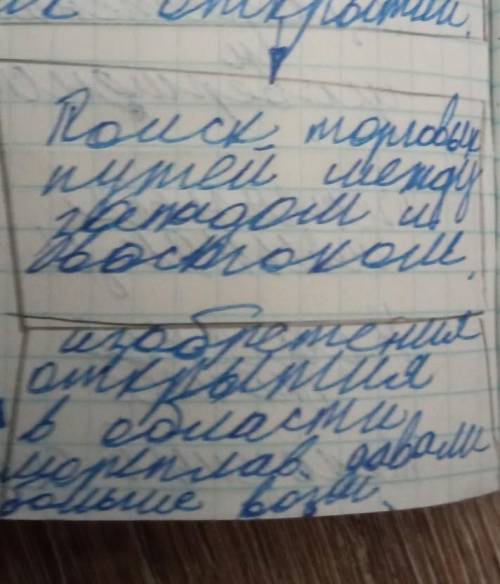 открытий.
Поиск торговых
путей между
западом и
востоком.
изобретения
открытия
в области
мореплав. давали
больше возм.